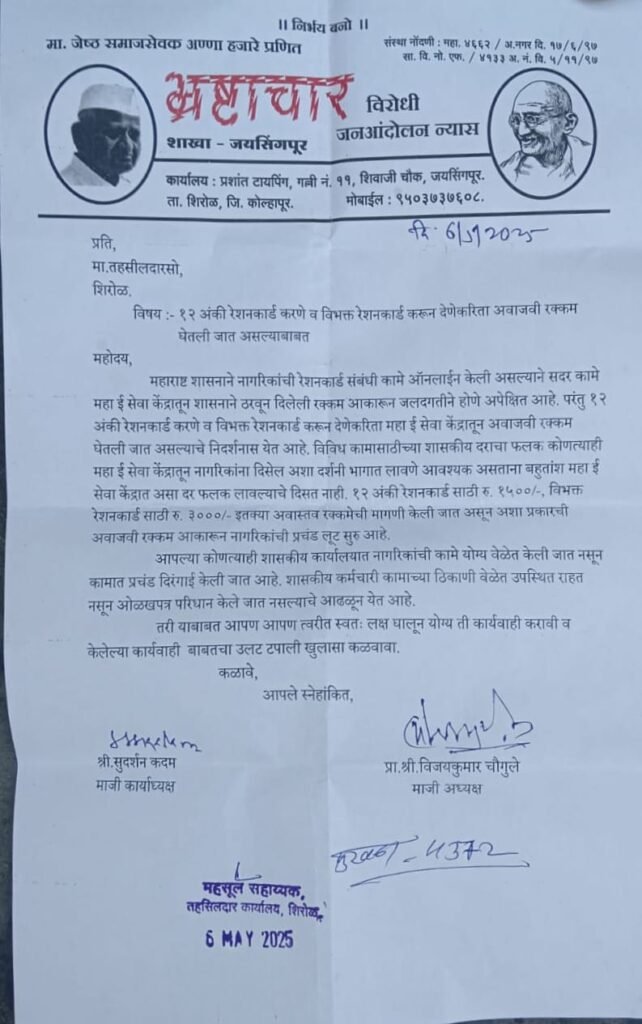 ॥ निर्भय बनो ॥
मा. जेष्ठ समाजसेवक अण्णा हजारे प्रणित
संस्था नोंदणी : महा. ४६६२ / अ.नगर दि. १७/६/९७
सा. वि. नो. एफ. / ४१३३ अ. नं. वि. ५/११/९७
भ्रष्टाचार विरोधी
जनआंदोलन न्यास
शाखा - जयसिंगपूर
कार्यालय : प्रशांत टायपिंग, गल्ली नं. ११, शिवाजी चौक, जयसिंगपूर.
ता. शिरोळ, जि. कोल्हापूर. मोबाईल : ९५०३७३७६०८.
दि. 6/5/2025
प्रति,
मा.तहसीलदारसो,
शिरोळ.
विषय :- १२ अंकी रेशनकार्ड करणे व विभक्त रेशनकार्ड करून देणेकरिता अवाजवी रक्कम
घेतली जात असल्याबाबत
महोदय,
महाराष्ट शासनाने नागरिकांची रेशनकार्ड संबंधी कामे ऑनलाईन केली असल्याने सदर कामे
महा ई सेवा केंद्रातून शासनाने ठरवून दिलेली रक्कम आकारून जलदगतीने होणे अपेक्षित आहे. परंतु १२
अंकी रेशनकार्ड करणे व विभक्त रेशनकार्ड करून देणेकरिता महा ई सेवा केंद्रातून अवाजवी रक्कम
घेतली जात असल्याचे निदर्शनास येत आहे. विविध कामासाठीच्या शासकीय दराचा फलक कोणत्याही
महा ई सेवा केंद्रातून नागरिकांना दिसेल अशा दर्शनी भागात लावणे आवश्यक असताना बहुतांश महा ई
सेवा केंद्रात असा दर फलक लावल्याचे दिसत नाही. १२ अंकी रेशनकार्ड साठी रु. १५००/-, विभक्त
रेशनकार्ड साठी रु. ३०००/- इतक्या अवास्तव रक्कमेची मागणी केली जात असून अशा प्रकारची
अवाजवी रक्कम आकारून नागरिकांची प्रचंड लूट सुरु आहे.
आपल्या कोणत्याही शासकीय कार्यालयात नागरिकांची कामे योग्य वेळेत केली जात नसून
कामात प्रचंड दिरंगाई केली जात आहे. शासकीय कर्मचारी कामाच्या ठिकाणी वेळेत उपस्थित राहत
नसून ओळखपत्र परिधान केले जात नसल्याचे आढळून येत आहे.
तरी याबाबत आपण आपण त्वरीत स्वतः लक्ष घालून योग्य ती कार्यवाही करावी व
केलेल्या कार्यवाही बाबतचा उलट टपाली खुलासा कळवावा.
कळावे,
आपले स्नेहांकित,
श्री.सुदर्शन कदम
माजी कार्याध्यक्ष
प्रा.श्री.विजयकुमार चौगुले
माजी अध्यक्ष
महसूल सहाय्यक,
तहसिलदार कार्यालय, शिरोळ
6 MAY 2025